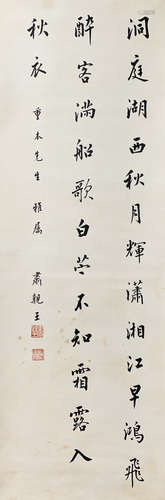 洞庭湖西秋月輝瀟湘江早鴻飛
醉客滿船歌白苧不知霜露入
秋衣
重本先生 雅属
肅親王